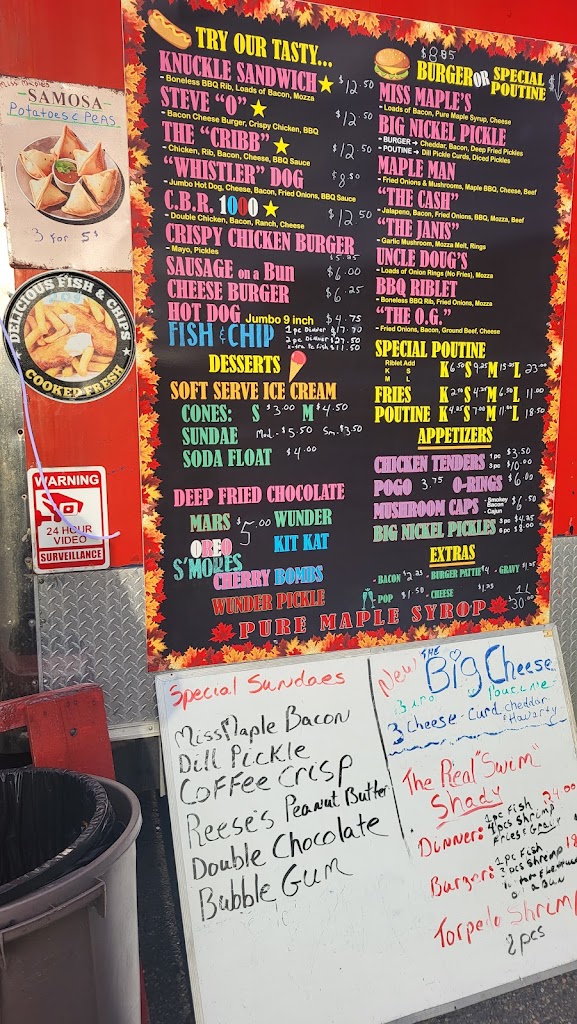 Miss Maple's
SAMOSA
Potatoes & PEAS
3 for 5$
DELICIOUS FISH & CHIPS
COOKED FRESH
WARNING
24 HOUR
VIDEO
SURVEILLANCE
TRY OUR TASTY...
KNUCKLE SANDWICH $12.50
- Boneless BBQ Rib, Loads of Bacon, Mozza
STEVE "O" $12.50
- Bacon Cheese Burger, Crispy Chicken, BBQ
THE "CRIBB" $12.50
- Chicken, Rib, Bacon, Cheese, BBQ Sauce
"WHISTLER" DOG $8.50
- Jumbo Hot Dog, Cheese, Bacon, Fried Onions, BBQ Sauce
C.B.R. 1000 $12.50
- Double Chicken, Bacon, Ranch, Cheese
CRISPY CHICKEN BURGER
- Mayo, Pickles
SAUSAGE on a Bun $6.00
CHEESE BURGER $6.25
HOT DOG Jumbo 9 inch $4.75
FISH & CHIP 1 pc Dinner $17.70
2 pc Dinner $27.50
x-tra Pc fish $11.50
DESSERTS
SOFT SERVE ICE CREAM
CONES: S $3.00 M $4.50
SUNDAE Med - $5.50 Sm. $3.50
SODA FLOAT $4.00
DEEP FRIED CHOCOLATE
MARS $5.00 WUNDER
OREO KIT KAT
S'MORES
CHERRY BOMBS
WUNDER PICKLE
$8.85
BURGER OR SPECIAL POUTINE
MISS MAPLE'S
- Loads of Bacon, Pure Maple Syrup, Cheese
BIG NICKEL PICKLE
- BURGER → Cheddar, Bacon, Deep Fried Pickles
- POUTINE → Dill Pickle Curds, Diced Pickles
MAPLE MAN
- Fried Onions & Mushrooms, Maple BBQ, Cheese, Beef
"THE CASH"
- Jalapeno, Bacon, Fried Onions, BBQ, Mozza, Beef
"THE JANIS"
- Garlic Mushroom, Mozza Melt, Rings
UNCLE DOUG'S
- Loads of Onion Rings (No Fries), Mozza
BBQ RIBLET
- Boneless BBQ Rib, Fried Onions, Mozza
"THE O.G."
- Fried Onions, Bacon, Ground Beef, Cheese
SPECIAL POUTINE
Riblet Add
K S
M L
K 6.50 S 9.25 M 15.25 L 23.00
FRIES K S M L 11.00
POUTINE K 4.25 S 7.00 M 11.00 L 18.50
APPETIZERS
CHICKEN TENDERS 1 pc $3.50
3 pc $10.00
POGO 3.75 O-RINGS $6.00
MUSHROOM CAPS - Smokey Bacon $6.50
- Cajun
BIG NICKEL PICKLES 3 pc $4.25
6 pc $8.00
EXTRAS
- BACON $2.25 - BURGER PATTIE $4 - GRAVY $1.25
- POP $1.50 - CHEESE $1.25
PURE MAPLE SYROP 1L $30.00
Special Sundaes
Miss Maple Bacon
Dill Pickle
Coffee Crisp
Reese's Peanut Butter
Double Chocolate
Bubble Gum
New THE
Big Cheese
Poutine
3 Cheese - Curd Cheddar
Havarty
The Real "Swim"
Shady
Dinner: 1pc Fish 24.00
4pcs Shrimp
Fries &
Burger: 1pc Fish
3 pcs Shrimp
on a Bun
Torpedo Shrimp
8 pcs